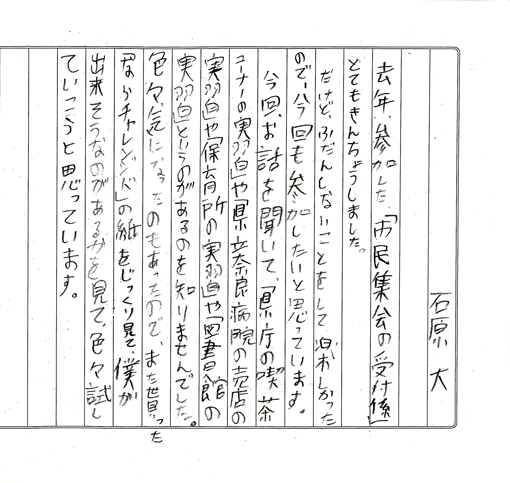 石原 大
去年、参加した、「市民集会の受付係」
とてもきんちょうしました。
だけど、ふだんしないことをして楽しかった
ので、今回も参加したいと思っています。
今回、お話を聞いて、「県庁の喫茶
コーナーの実習」や「県立奈良病院の売店の
実習」や「保育所の実習」や「図書館の
実習」というのがあるのを知りませんでした。
色々、気になったのもあったので、また貰った
「ならチャレンジド」の紙をじっくり見て、僕が
出来そうなのがあるかを見て、色々試し
ていこうと思っています。